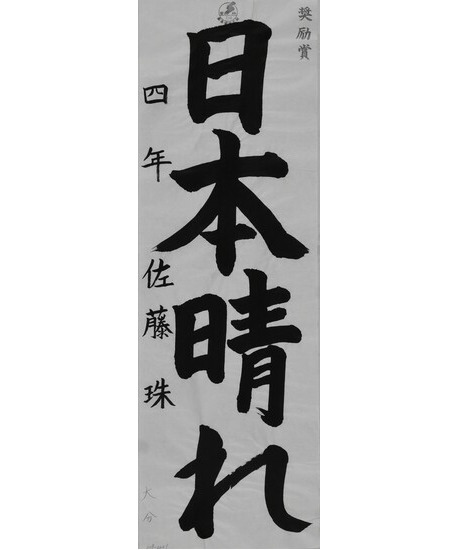 奨励賞
日本晴れ
四年 佐藤珠
大分